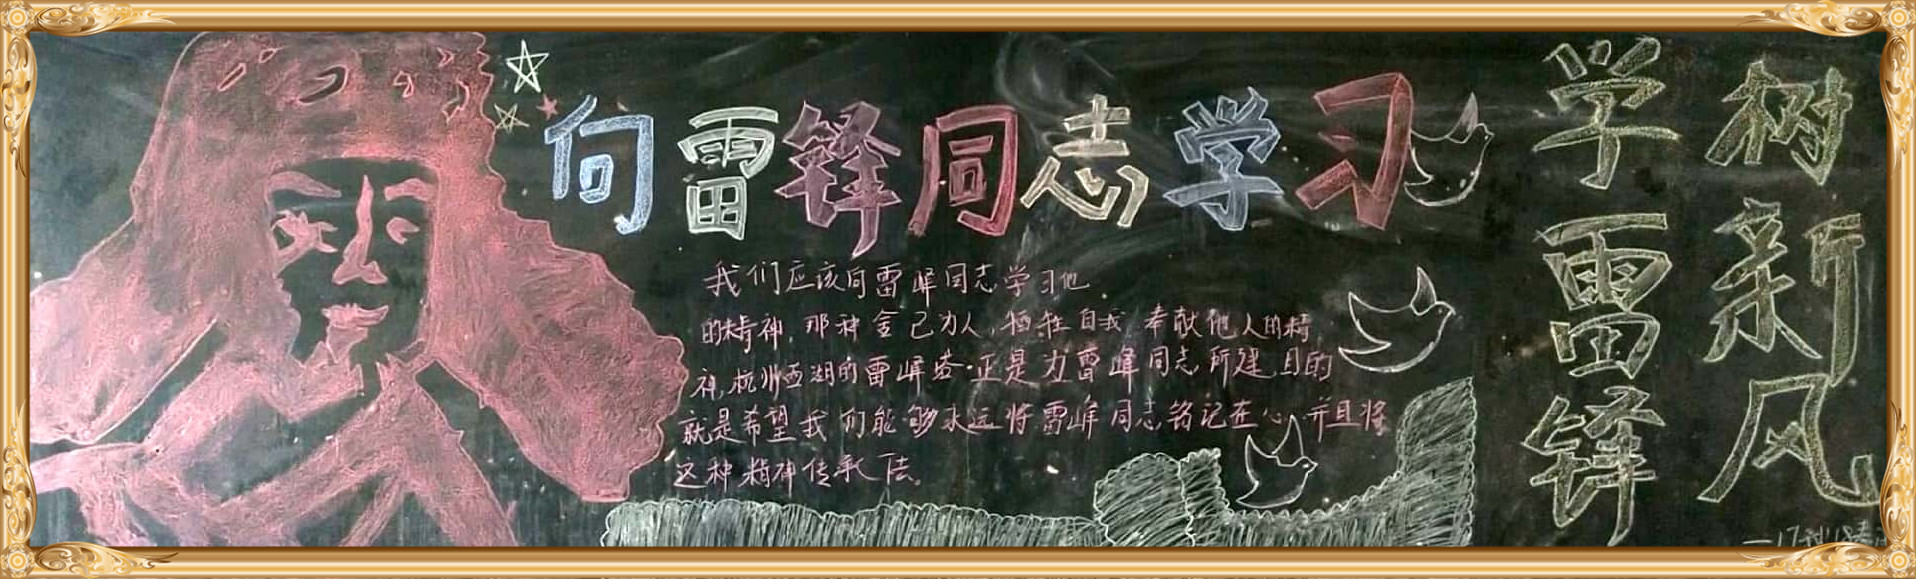 向雷锋同志学习
我们应该向雷峰同志学习他
的精神,那种舍己为人,牺牲自我,奉献他人的精
神,杭州西湖的雷峰塔·正是为雷峰同志所建,目的
就是希望我们能够永远将雷峰同志铭记在心,并且将
这种精神传承下去。
学雷锋
树新风